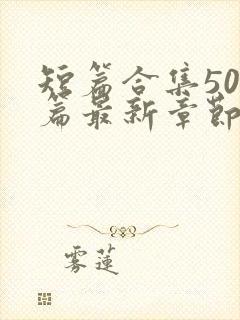 短篇合集50
篇最新章節
雾蓮